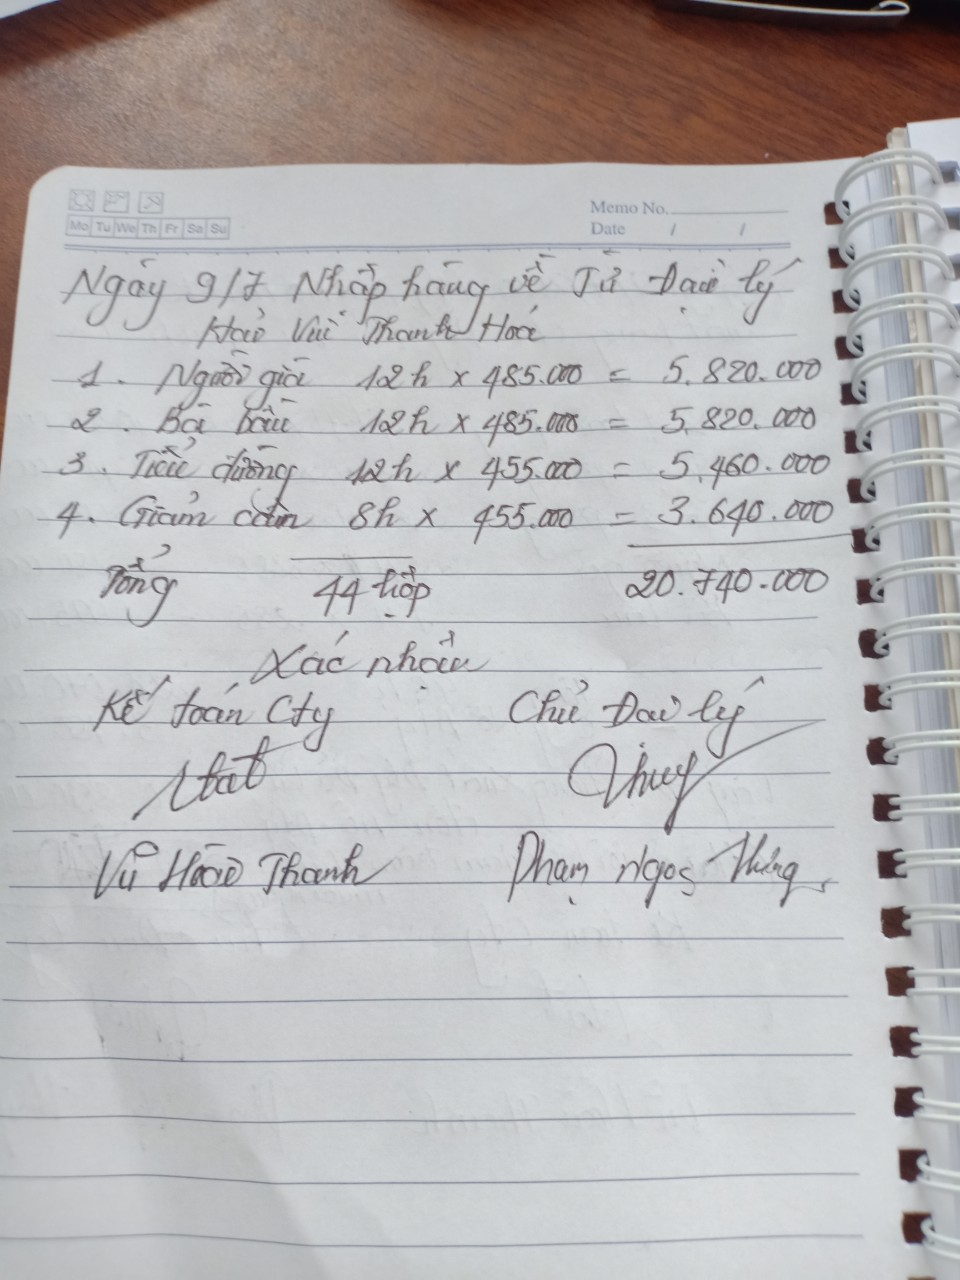 Memo No.
Mo Tu We Th Fr Sa Su
Date / /
Ngày 9/7 Nhập hàng về Từ Đại lý
Hảo Vui Thanh Hoá
1. Người già 12h x 485.000 = 5.820.000
2. Bà bầu 12h x 485.000 = 5.820.000
3. Tiểu đường 12h x 455.000 = 5.460.000
4. Giảm cân 8h x 455.000 = 3.640.000
Tổng 44 hộp 20.740.000
Xác nhận
Kế toán Cty Chủ Đại lý
Vũ Hoài Thanh Phạm Ngọc